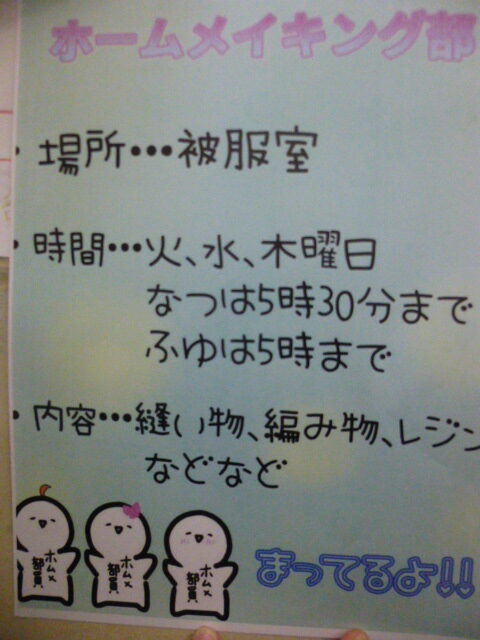 ホームメイキング部
・場所…被服室
・時間…火、水、木曜日
なつは5時30分まで
ふゆは5時まで
・内容…縫い物、編み物、レジン
などなど
ホムメ部員
ホムメ部員
ホムメ部員
まってるよ!!